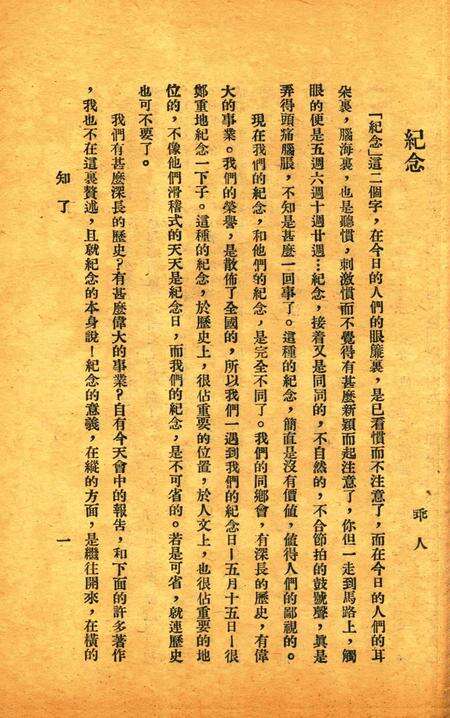 紀念
乖人
「紀念」這二個字，在今日的人們的眼簾裏，是已看慣而不注意了，而在今日的人們的耳
朶裏，腦海裏，也是聽慣，刺激慣而不覺得有甚麼新穎而起注意了，你但一走到馬路上，觸
眼的便是五週六週十週廿週…紀念，接着又是同同的，不自然的，不合節拍的鼓號聲，眞是
弄得頭痛腦脹，不知是甚麼一回事了。這種的紀念，簡直是沒有價値，値得人們的鄙視的。
現在我們的紀念，和他們的紀念，是完全不同了。我們的同鄉會，有深長的歷史，有偉
大的事業。我們的榮譽，是散佈了全國的，所以我們一遇到我們的紀念日—五月十五日—很
鄭重地紀念一下子。這種的紀念，於歷史上，很佔重要的位置，於人文上，也很佔重要的地
位的，不像他們滑稽式的天天是紀念日，而我們的紀念，是不可省的。若是可省，就連歷史
也可不要了。
我們有甚麼深長的歷史？有甚麼偉大的事業？自有今天會中的報告，和下面的許多著作
，我也不在這裏贅述，且就紀念的本身說！紀念的意義，在縱的方面，是繼往開來，在橫的
知了
一